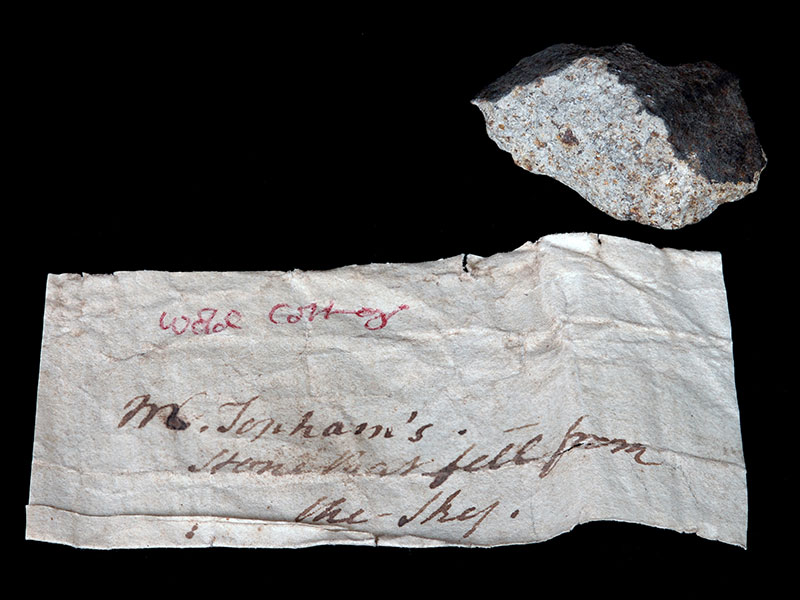 Wold Cottage
Mr. Topham's
Stone that fell from
the Sky.